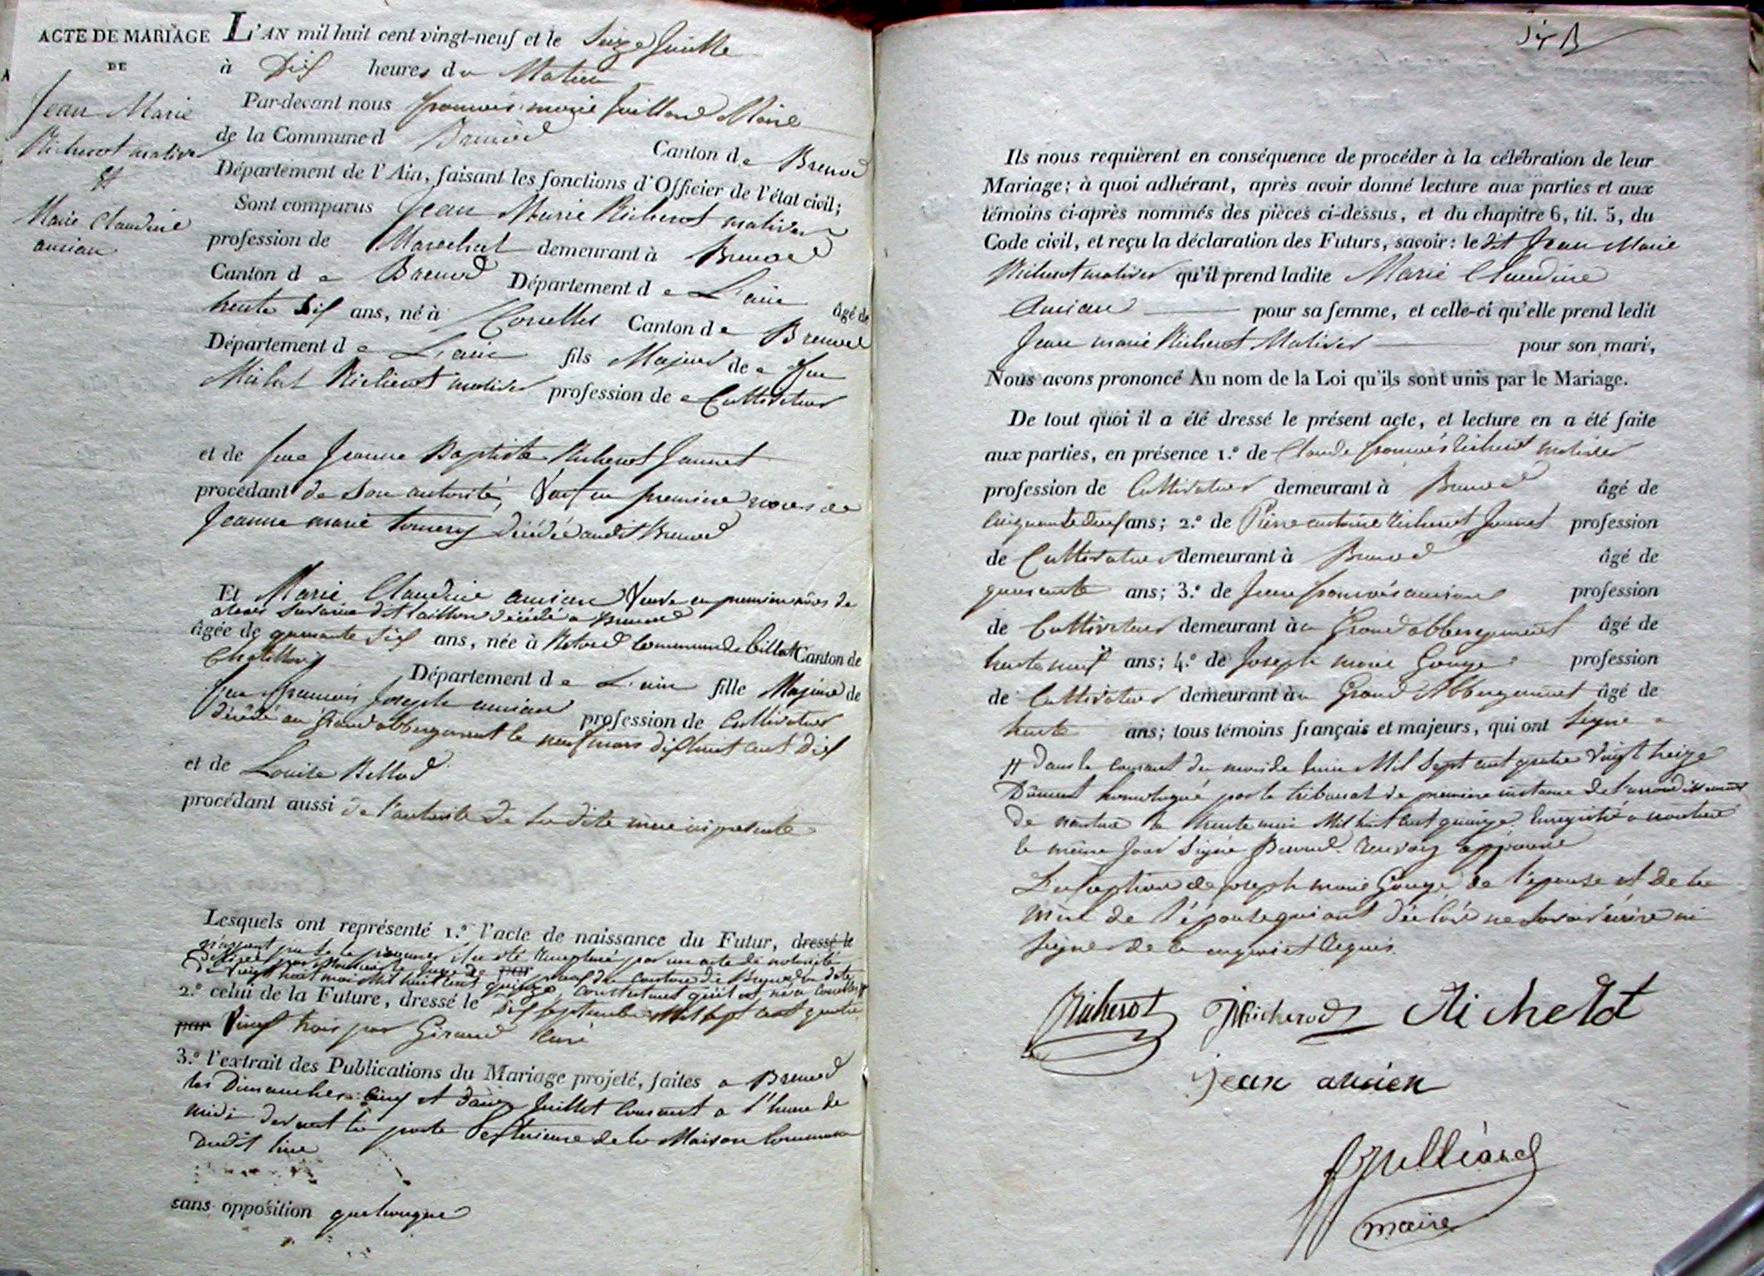 ACTE DE MARIAGE
DE
Jean Marie
Richerot mativet
et
Marie Claudine
ancian
L'AN mil huit cent vingt-neuf et le Seize Juillet
à Dix heures du Matin
Par-devant nous françois marie Juillard Maire
de la Commune d Brenod Canton de Brenod
Département de l'Ain, faisant les fonctions d'Officier de l'état civil;
Sont comparus Jean Marie Richerot mativet
profession de Marechal demeurant à Brenod
Canton de Brenod Département de L'ain âgé de
trente six ans, né à Corcelles Canton de Brenod
Département de L'ain fils Majeur de feu
Michel Richerot mativet profession de Cultivateur
et de feue Jeanne Baptiste Richerot Jannet
procédant de son autorité, Veuf en premiere noces de
Jeanne marie décédée audit Brenod
Et Marie Claudine ancian Veuve en premiere nôces de
dit taillon décédé a Brenod
âgée de quarante six ans, née à commune de Canton de
Chatillon Département de L'ain fille Majeure de
feu françois Joseph ancian profession de Cultivateur
décédé au Grand abbergement le neuf mars dix huit cent dix
et de Louise
procédant aussi de l'autorité de sa dite mere ici presente
Lesquels ont représenté 1.° l'acte de naissance du Futur, dressé le
par un acte de notorieté
par du canton de Brenod en date
de vingt huit mai mil huit cent quinze constatant qu'il est né a Corcelles #
2.° celui de la Future, dressé le dix septembre Mil sept cent quatre
par Vingt trois par Giraud curé
3.° l'extrait des Publications du Mariage projeté, faites a Brenod
les Dimanches cinq et douze Juillet courant a l'heure de
midi devant la porte exterieure de la Maison Commune
dudit lieu
sans opposition quelconque
Ils nous requièrent en conséquence de procéder à la célébration de leur
Mariage; à quoi adhérant, après avoir donné lecture aux parties et aux
témoins ci-après nommés des pièces ci-dessus, et du chapitre 6, tit. 5, du
Code civil, et reçu la déclaration des Futurs, savoir: le dit Jean Marie
Richerot mativet qu'il prend ladite Marie Claudine
Ancian pour sa femme, et celle-ci qu'elle prend ledit
Jean marie Richerot Mativet pour son mari,
Nous avons prononcé Au nom de la Loi qu'ils sont unis par le Mariage.
De tout quoi il a été dressé le présent acte, et lecture en a été faite
aux parties, en présence 1.° de Claude françois Richerot mativet
profession de Cultivateur demeurant à Brenod âgé de
ans; 2.° de Pierre antoine Richerot Jannet profession
de Cultivateur demeurant à Brenod âgé de
quarante ans; 3.° de Jean françois ancian profession
de Cultivateur demeurant au Grand abbergement âgé de
trente neuf ans; 4.° de Joseph marie Gouge profession
de Cultivateur demeurant au Grand Abbergement âgé de
trente ans; tous témoins français et majeurs, qui ont signé
# dans le courant du mois de Mil sept cent quatre vingt treize
Dûment homologué par le tribunal de premiere instance de l'arrondissement
de nantua le trente mai Mil huit cent quinze. Enregistré a nantua
le même Jour signé renvoy approuvé
L'exception de Joseph marie Gouge de l'epouse et de la
mere de l'épouse qui ont déclaré ne savoir écrire ni
signer de ce enquis et requis
Richerot JRicherod Richerot
jean ancien
fJulliard
maire